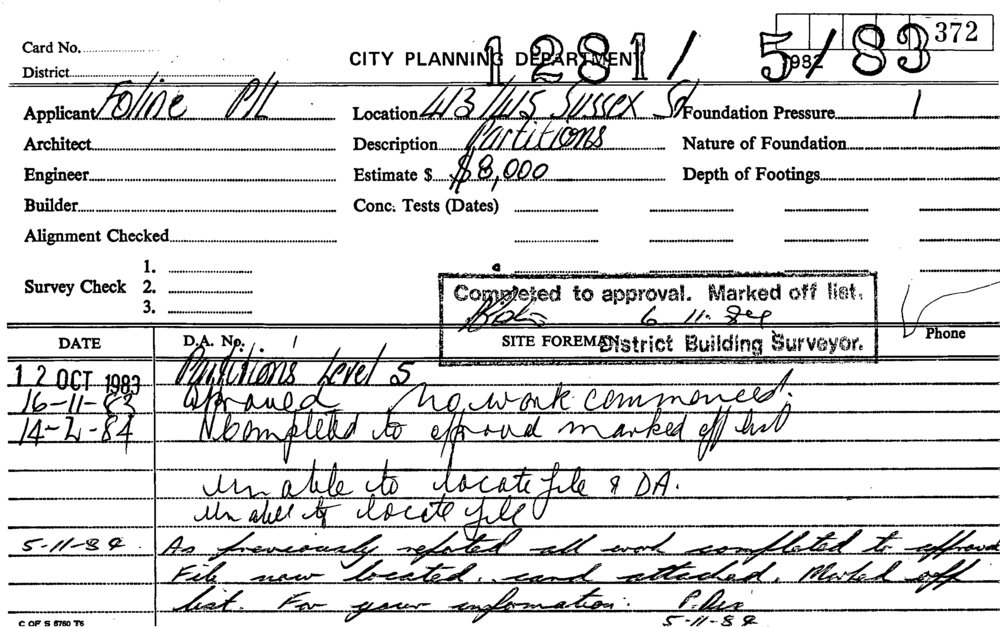 372
Card No.
CITY PLANNING DEPARTMENT 1281/5/83
1982
District
Applicant Foline P/L Location 413/415 Sussex St Foundation Pressure
Architect Description Partitions Nature of Foundation
Engineer Estimate $ $8,000 Depth of Footings
Builder Conc. Tests (Dates)
Alignment Checked
1.
Survey Check 2.
3.
Completed to approval. Marked off list.
6 11. 84
District Building Surveyor.
DATE D.A. No. SITE FOREMAN Phone
12 OCT 1983 Partitions Level 5
16-11-83 approved no work commenced.
14-2-84 Completed to approval marked off list
Unable to locate file & DA.
Unable to locate file
5-11-84 As previously reported all work completed to approval
File now located. card attached. Marked off
list. For your information.
5-11-84
C OF S 5760 T6